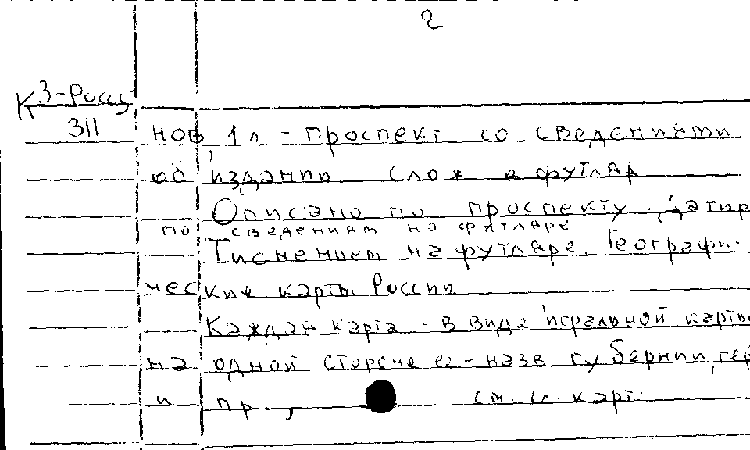 2
К 3-Росс
311
нов 1 л - проспект со сведениями
об издании слож в футляр
Описано по проспекту, Датир
по сведениям на футляре
Тиснением на футляре: Географи-
ческие карты России
Каждая карта - в виде игральной карты
на одной стороне ее - назв губернии, гер
и пр, см. 1л. карт.